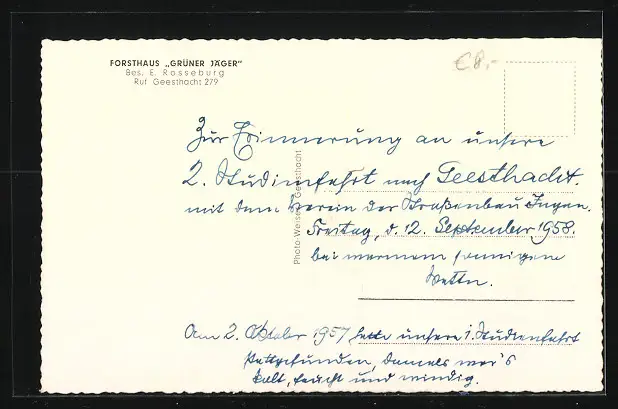 FORSTHAUS „GRÜNER JÄGER"
Bes. E. Rosseburg
Ruf Geesthacht 279
€8,-
Zur Erinnerung an unsere
2. Studienfahrt nach Geesthacht.
mit dem Verein der Straßenbau Ingen.
Freitag, d. 12. September 1958.
bei warmem sonnigem
Wetter.
Photo-Weise, Geesthacht
Am 2. Oktober 1957 hatte unsere 1. Studienfahrt
stattgefunden, damals war's
kalt, feucht und windig.